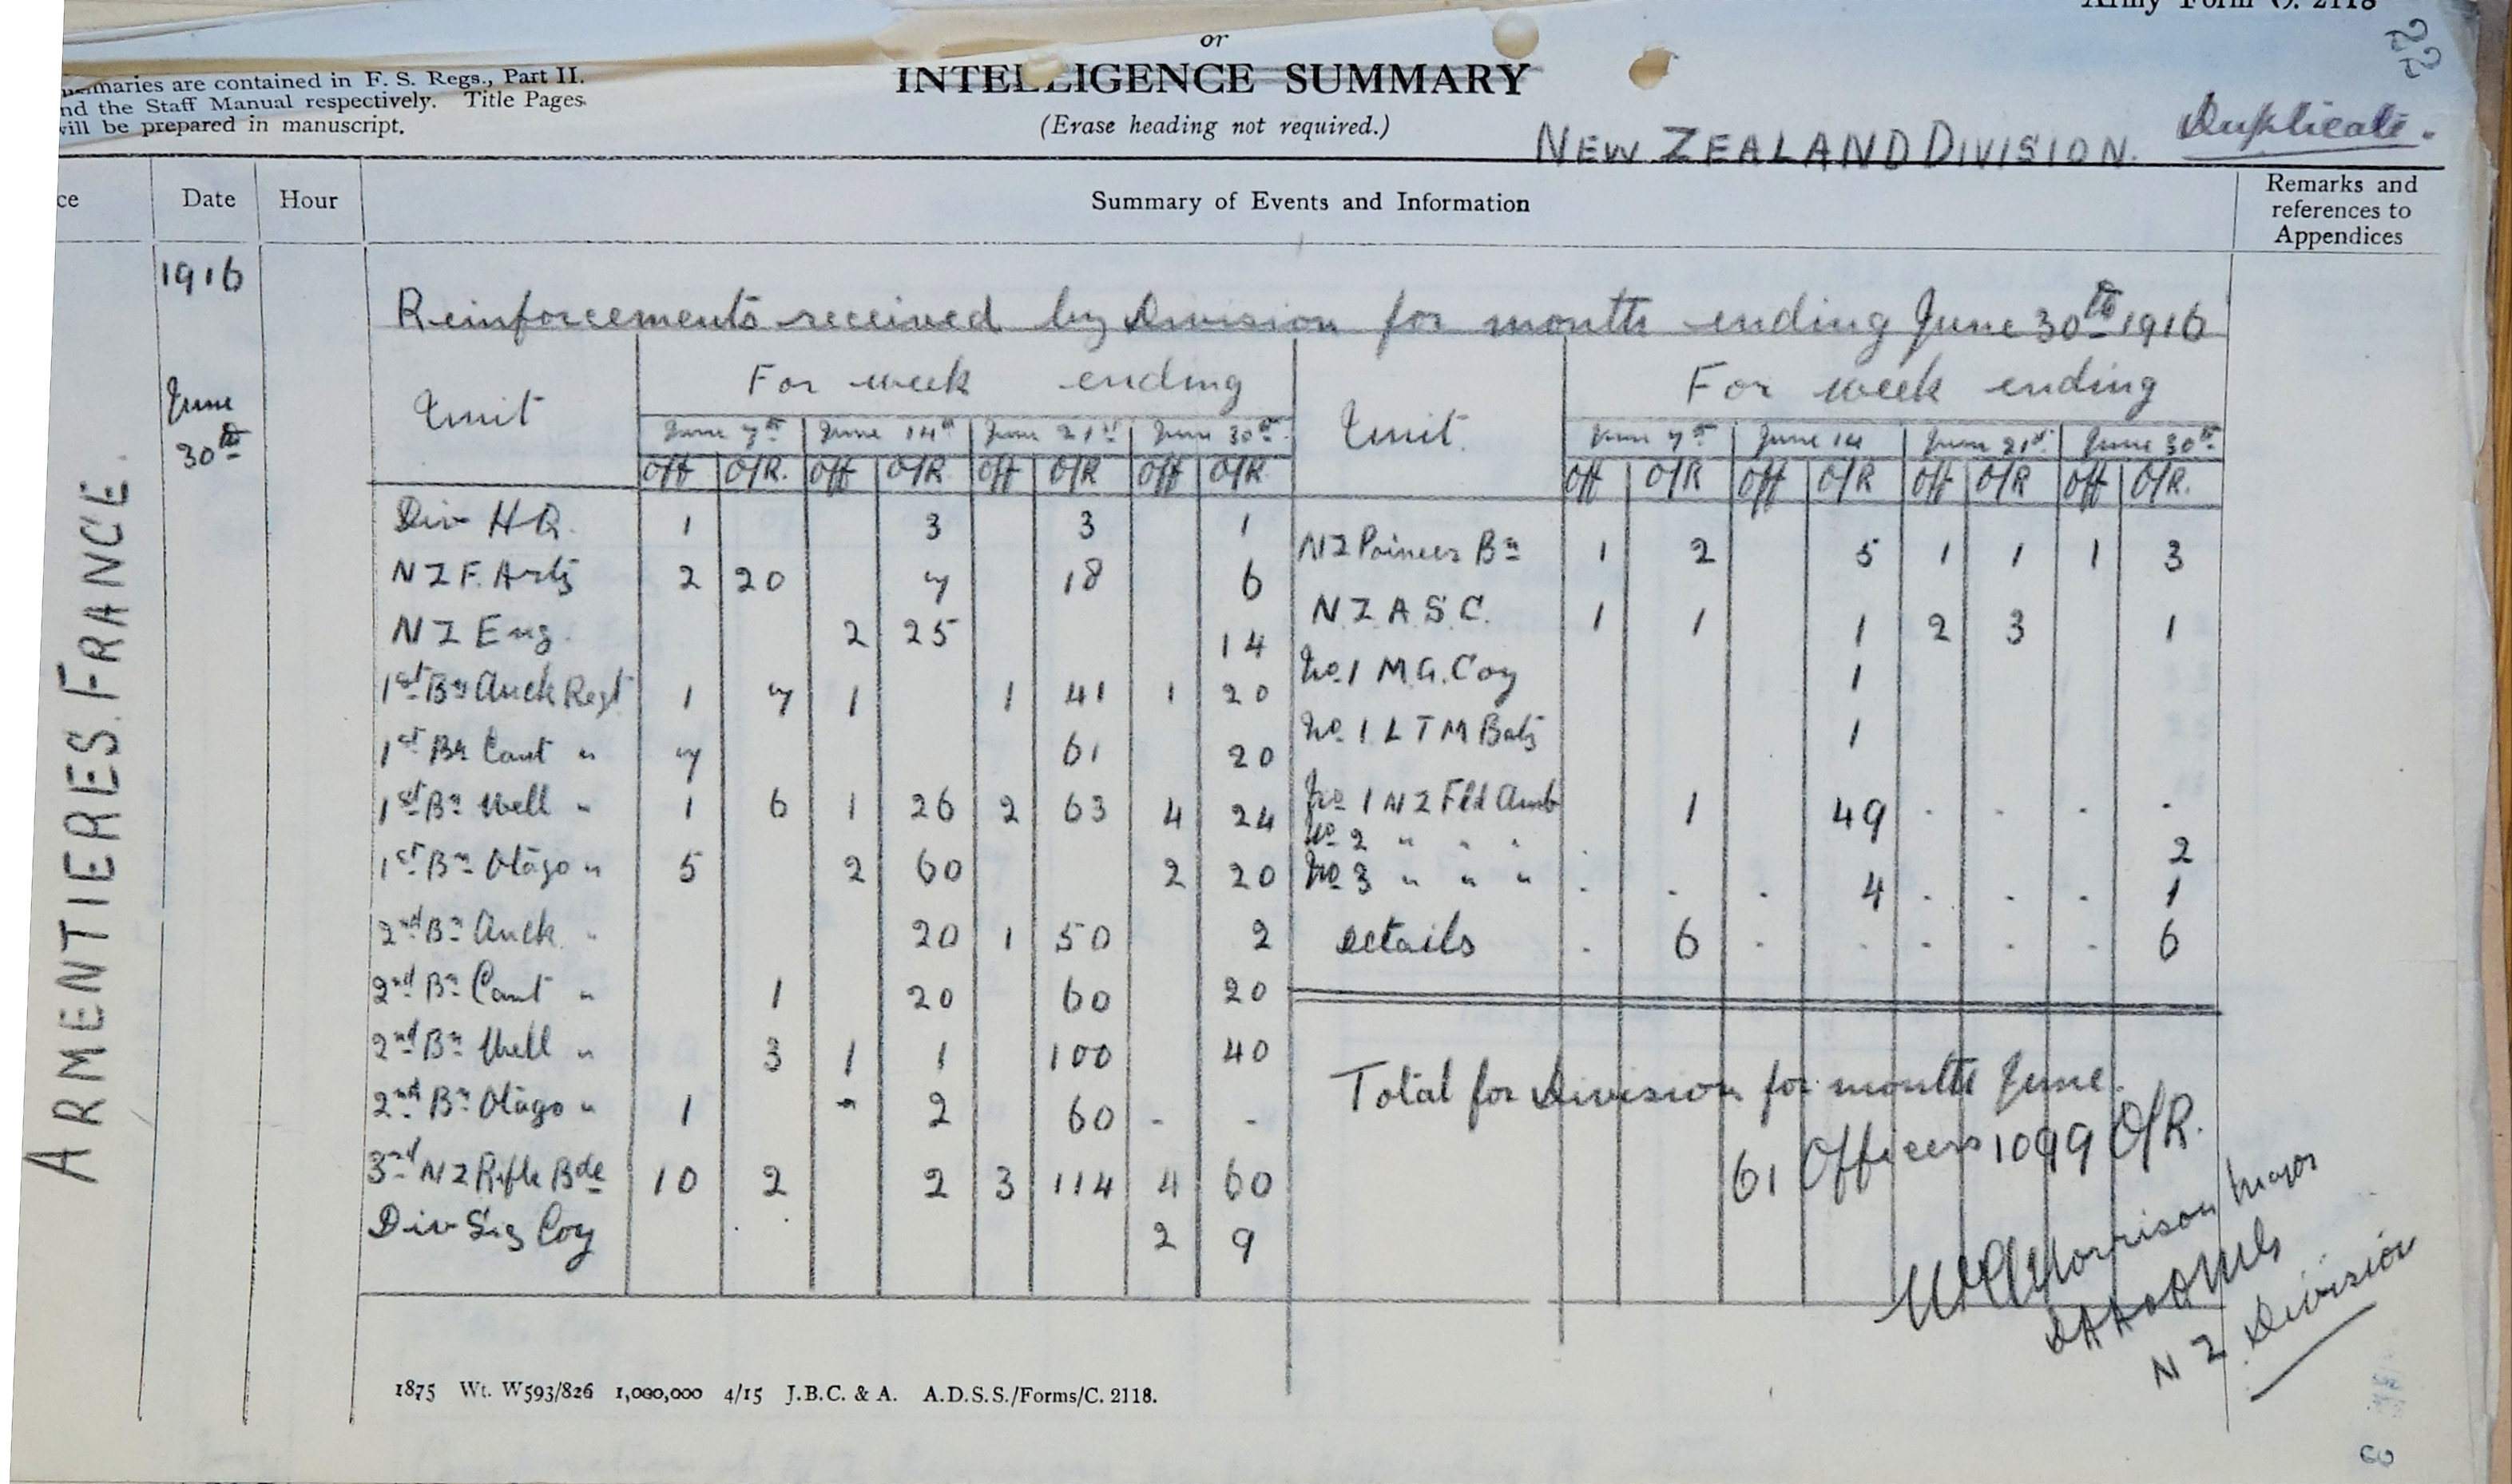 Army Form C. 2118
22
or
INTELLIGENCE SUMMARY
(Erase heading not required.)
maries are contained in F. S. Regs., Part II.
nd the Staff Manual respectively. Title Pages
will be prepared in manuscript.
NEW ZEALAND DIVISION.
Duplicate.
ce Date Hour Summary of Events and Information Remarks and references to Appendices
ARMENTIERES. FRANCE.
1916
June
30th
Reinforcements received by Division for month ending June 30th 1916
Unit For week ending
June 7th June 14th June 21st June 30th
Off O/R. Off O/R Off O/R Off O/R
Div H.Q. 1 3 3 1
N Z F. Arty 2 20 7 18 6
N Z Eng. 2 25 14
1st Bn Auck Regt 1 7 1 1 41 1 20
1st Bn Cant " 7 61 20
1st Bn Well " 1 6 1 26 2 63 4 24
1st Bn Otago " 5 2 60 2 20
2nd Bn Auck. " 20 1 50 2
2nd Bn Cant " 1 20 60 20
2nd Bn Well " 3 1 1 100 40
2nd Bn Otago " 1 - 2 60 - -
3rd N Z Rifle Bde 10 2 2 3 114 4 60
Div Sig Coy 2 9
Unit. For week ending
June 7th June 14 June 21st June 30th
Off O/R Off O/R Off O/R Off O/R.
N Z Poineer Bn 1 2 5 1 1 1 3
N.Z.A.S.C. 1 1 1 2 3 1
No. 1 M.G. Coy 1
No. 1 L T M Baty 1
No 1 N Z Fld Amb 1 49 . . . .
No 2 " " " 2
No 3 " " " . . . 4 . . . 1
Details . 6 . . . . . 6
Total for Division for month June.
61 Officers 1099 O/R.
Morrison Major
N Z Division
1875 Wt. W593/826 1,000,000 4/15 J.B.C. & A. A.D.S.S./Forms/C. 2118.